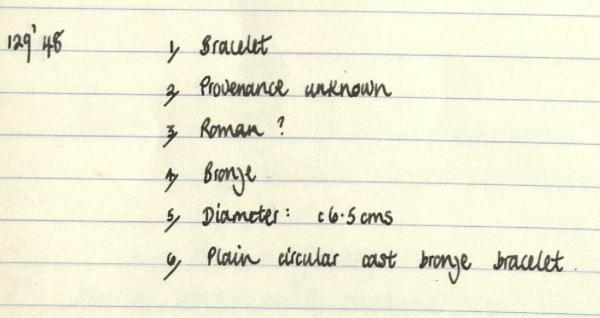 129' 48 1, Bracelet
2, Provenance unknown
3, Roman ?
4, Bronze
5, Diameter: c6.5cms
6, Plain circular cast bronze bracelet.